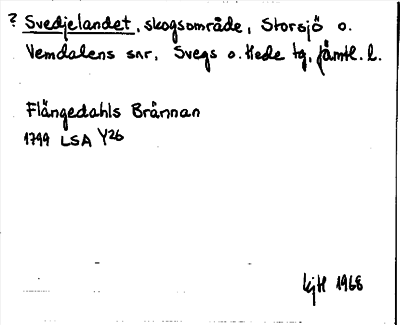 ? Svedjelandet, skogsområde, Storsjö o.
Vemdalens snr, Svegs o. Hede tg, Jämtl. l.
Flångedahls Brånnan
1799 LSA Y26
1968